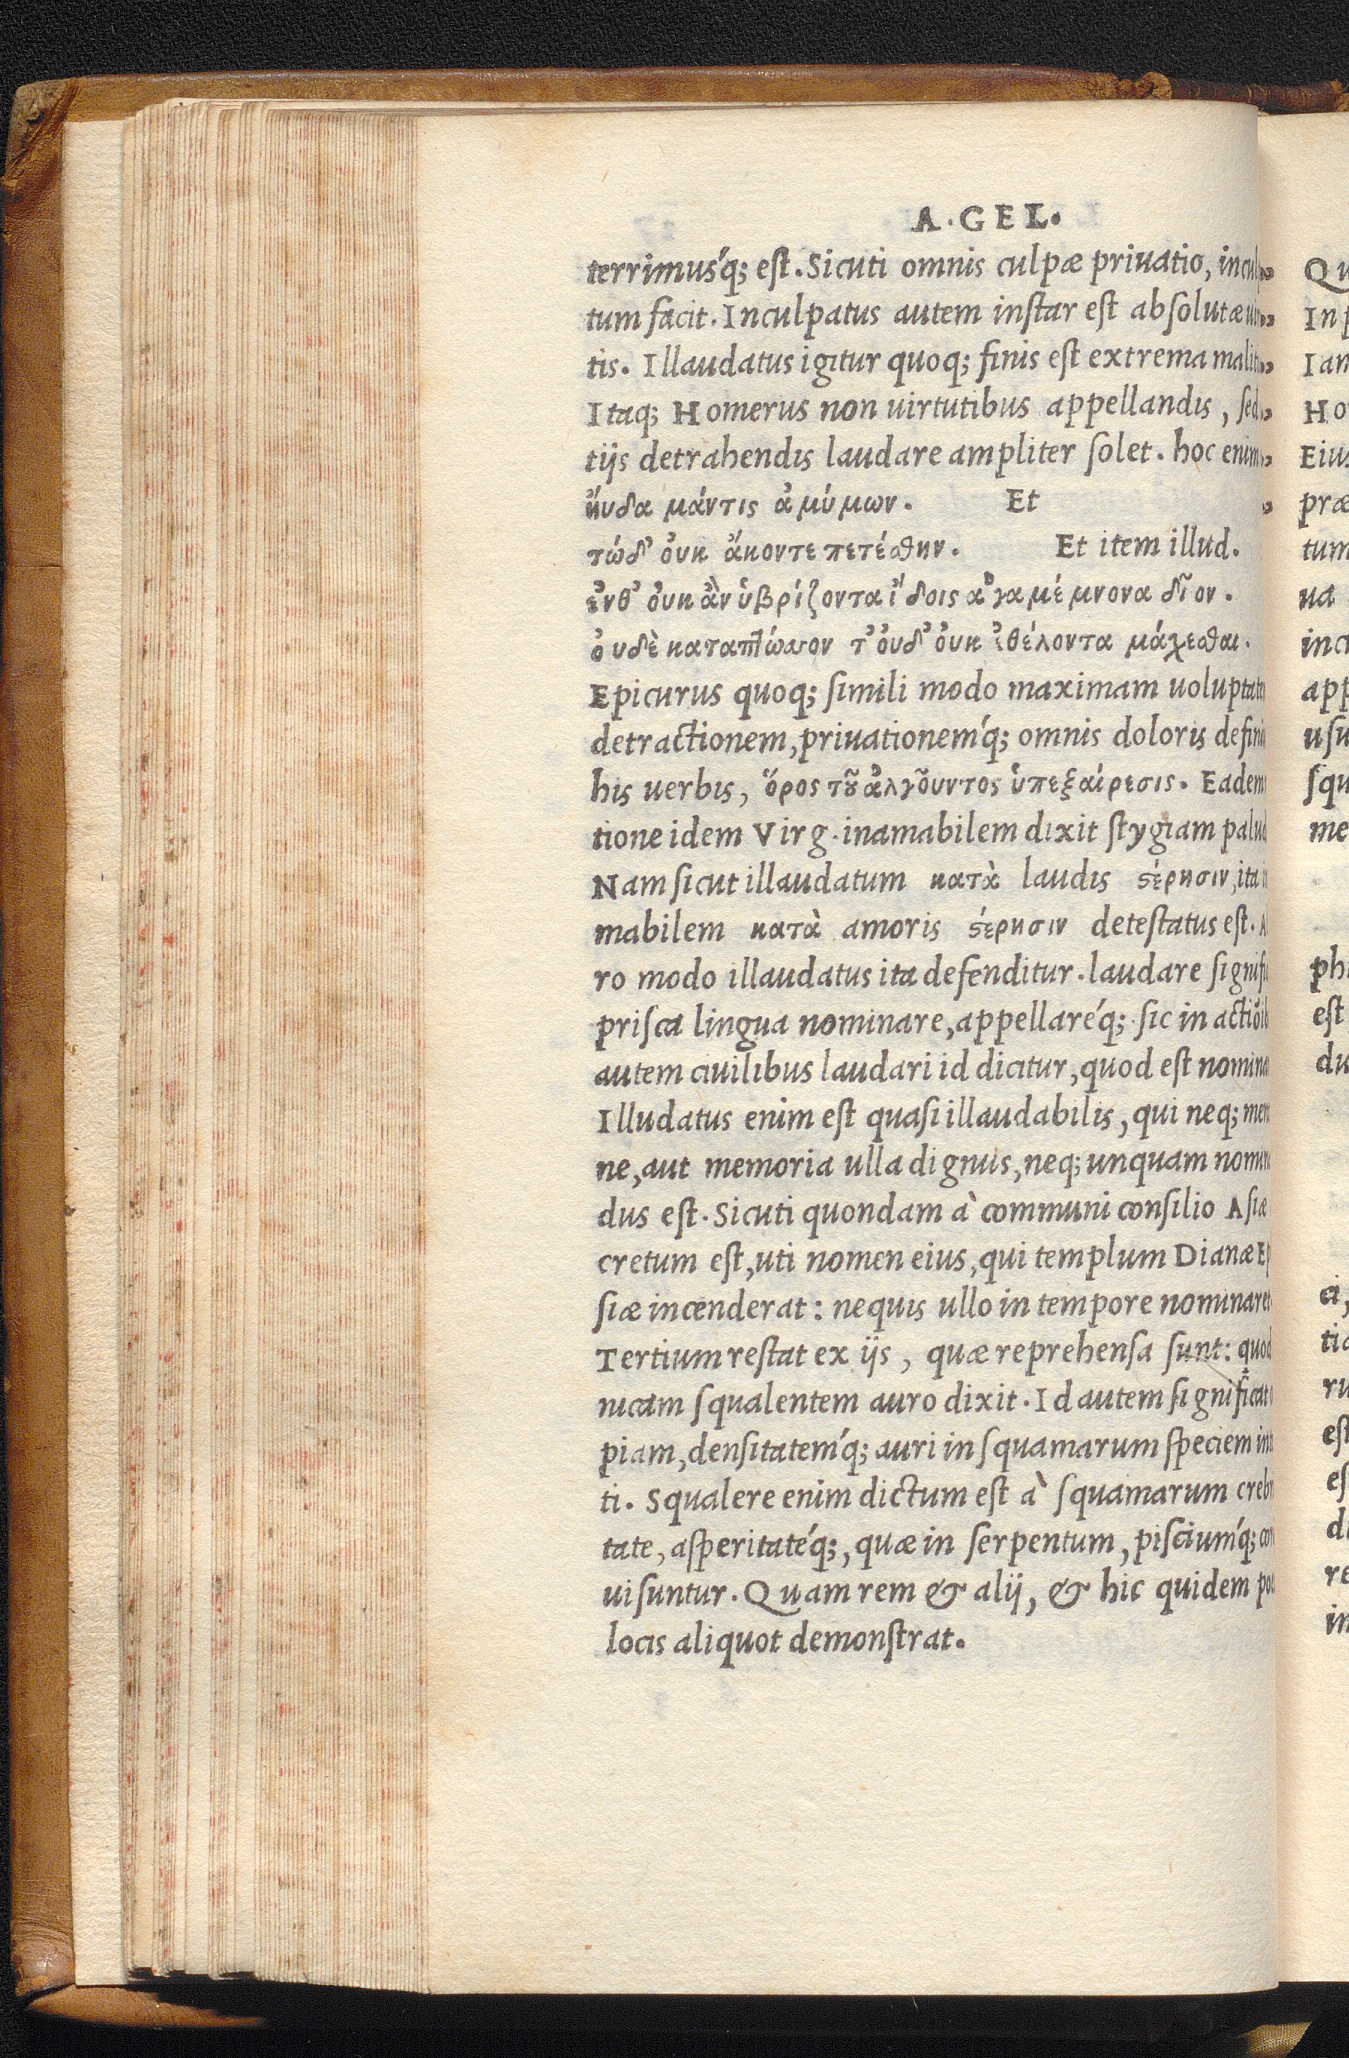 A. GEL.
terrimusq́; est. Sicuti omnis culpæ priuatio, incul
tum facit. Inculpatus autem instar est absolutæ uir
tis. Illaudatus igitur quoq; finis est extrema maliti
Itaq; Homerus non uirtutibus appellandis, sed
tijs detrahendis laudare ampliter solet. hoc enim
ἤυδα μάντις ἀμύμων. Et
τώδ' ὀυκ ἄκοντε πετέσθην. Et item illud.
ἐνθ' ὀυκ ἂν ὑβρίζοντα ἴδοις ἀγαμέμνονα δῖον.
ὀυδὲ καταπτώσσον τ' ὀυδ' ὀυκ ἐθέλοντα μάχεσθαι.
Epicurus quoq; simili modo maximam uoluptate
detractionem, priuationemq́; omnis doloris defini
his uerbis, ὅρος τοῦ ἀλγοῦντος ὑπεξαίρεσις. Eadem
tione idem Virg. inamabilem dixit stygiam palud
Nam sicut illaudatum κατὰ laudis στέρησιν, ita i
mabilem κατὰ amoris στέρησιν detestatus est. A
ro modo illaudatus ita defenditur. laudare signifi
prisca lingua nominare, appellareq́; sic in actiõib
autem ciuilibus laudari id dicitur, quod est nomina
Illudatus enim est quasi illaudabilis, qui neq; men
ne, aut memoria ulla dignus, neq; unquam nomin
dus est. Sicuti quondam à communi consilio Asiæ
cretum est, uti nomen eius, qui templum Dianæ Ep
siæ incenderat: nequis ullo in tempore nominaret
Tertium restat ex ijs, quæ reprehensa sunt: quod
nicam squalentem auro dixit. Id autem significat
piam, densitatemq́; auri in squamarum speciem int
ti. Squalere enim dictum est à squamarum creb
tate, asperitateq́;, quæ in serpentum, pisciumq́; co
uisuntur. Quam rem & alij, & hic quidem po
locis aliquot demonstrat.
Qu
In p
Iam
Ho
Eius
præ
tum
na
inc
app
usu
squ
me
ph
est
du
ci,
tia
ru
est
es
di
re
in